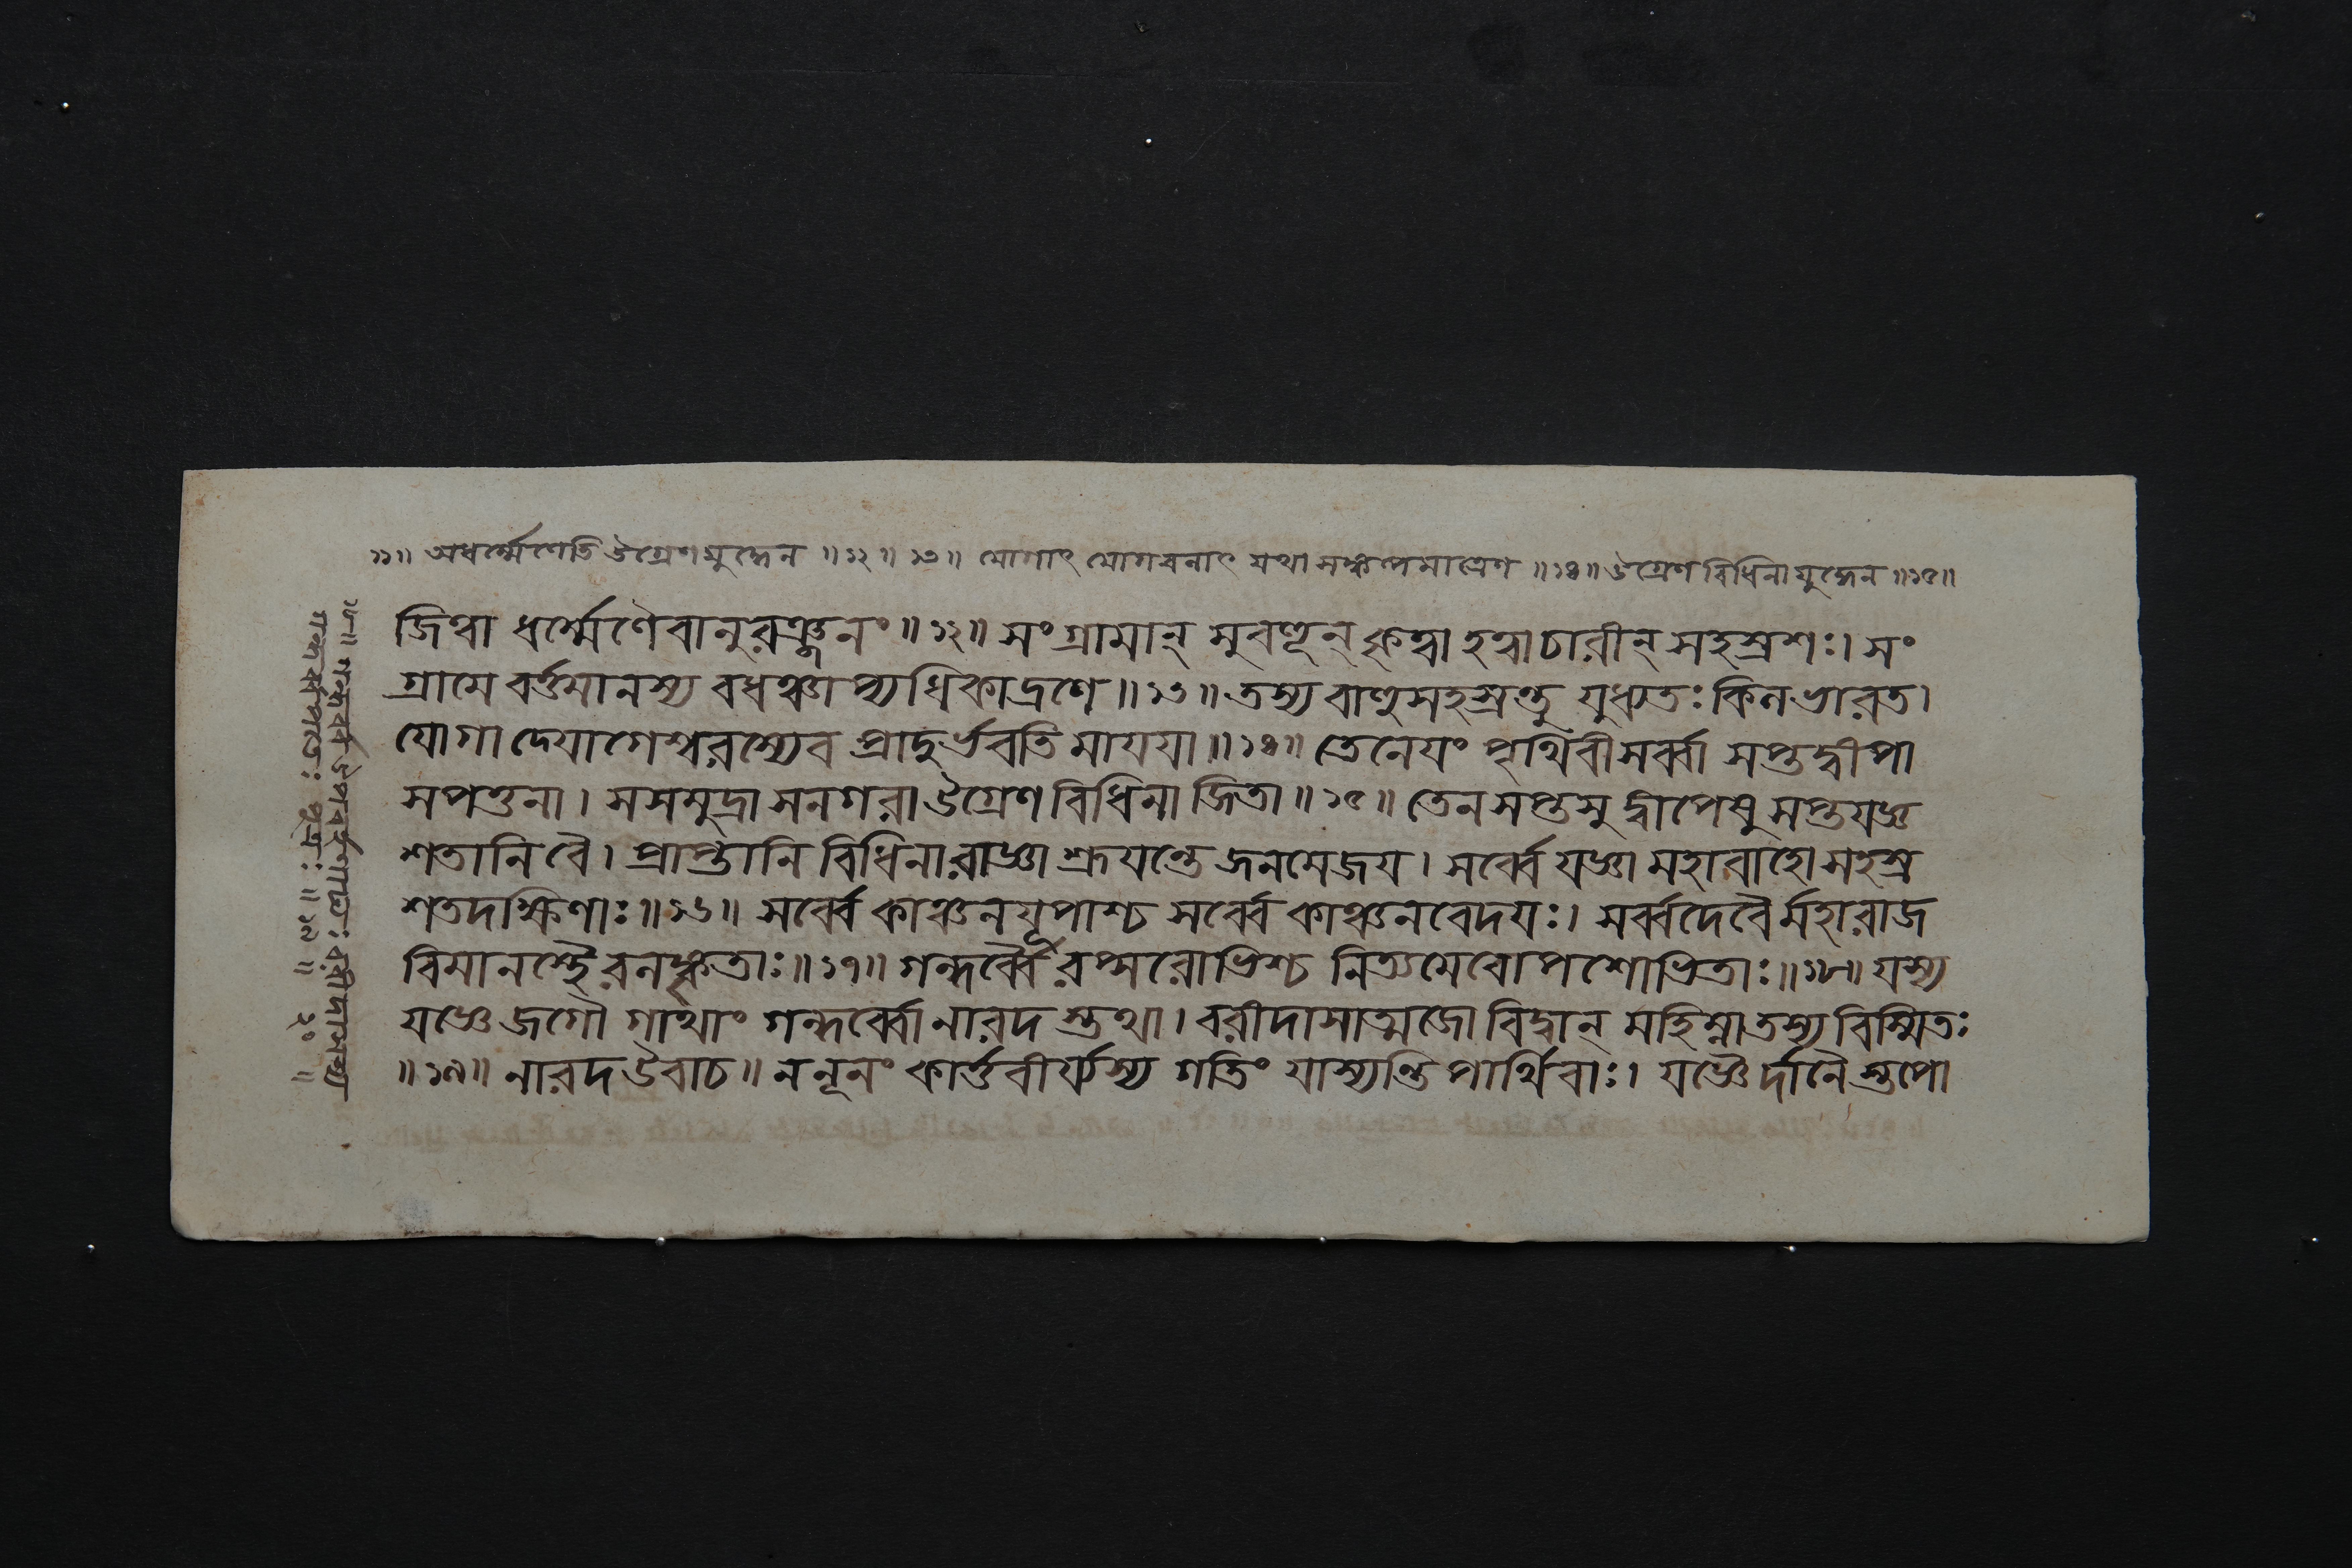 ১১॥ অধর্ম্মেণেতি উগ্রেণ যুদ্ধেন ॥১২॥ ১৩॥ যোগাৎ যোগবলাৎ যথা সঙ্কল্পমাত্রেণ ॥১৪॥ উগ্রেণ বিধিনা যুদ্ধেন ॥১৫॥
জিত্বা ধর্ম্মেণৈবানুরঞ্জনং॥১২॥ সংগ্রামান্ সুবহূন্ কৃত্বা হত্বা চারীন্ সহস্রশঃ। সং
গ্রামে বর্ত্তমানস্য বধঞ্চাপ্যধিকাদ্রণে॥১৩॥ তস্য বাহুসহস্রন্তু যুধ্যতঃ কিল ভারত।
যোগাদ্যোগেশ্বরস্যেব প্রাদুর্ভবতি মায়য়া॥১৪॥ তেনেয়ং পৃথিবী সর্ব্বা সপ্তদ্বীপা
সপত্তনা। সসমুদ্রা সনগরা উগ্রেণ বিধিনা জিতা॥১৫॥ তেন সপ্তসু দ্বীপেষু সপ্ত যজ্ঞ
শতানি বৈ। প্রাপ্তানি বিধিনা রাজ্ঞা শ্রূয়ন্তে জনমেজয়। সর্ব্বে যজ্ঞা মহাবাহো সহস্র
শতদক্ষিণাঃ॥১৬॥ সর্ব্বে কাঞ্চনযূপাশ্চ সর্ব্বে কাঞ্চনবেদয়ঃ। সর্ব্বদেবৈর্মহারাজ
বিমানস্থৈরলঙ্কৃতাঃ॥১৭॥ গন্ধর্ব্বৈরপ্সরোভিশ্চ নিত্যমেবোপশোভিতাঃ॥১৮॥ যস্য
যজ্ঞে জগৌ গাথাং গন্ধর্ব্বো নারদস্তথা। বরীদাসাত্মজো বিদ্বান্ মহিম্না তস্য বিস্মিতঃ
॥১৯॥ নারদ উবাচ॥ ন নূনং কার্ত্তবীর্য্যস্য গতিং যাস্যন্তি পার্থিবাঃ। যজ্ঞৈর্দানৈস্তপো
১৮॥ গন্ধর্ব্ব উপবর্হণাখ্যঃ বরীদাসাখ্য
গন্ধর্ব্বপতেঃ পুত্রঃ ॥১৯॥ ২০॥